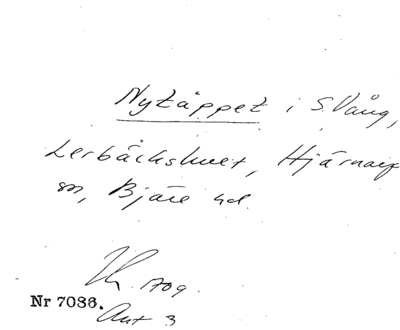 Nytäppet i S. Vång,
Lerbäckshuset, Hjärnarp
sn, Bjäre hd.
1709.
Nr 7086.
Ant 3